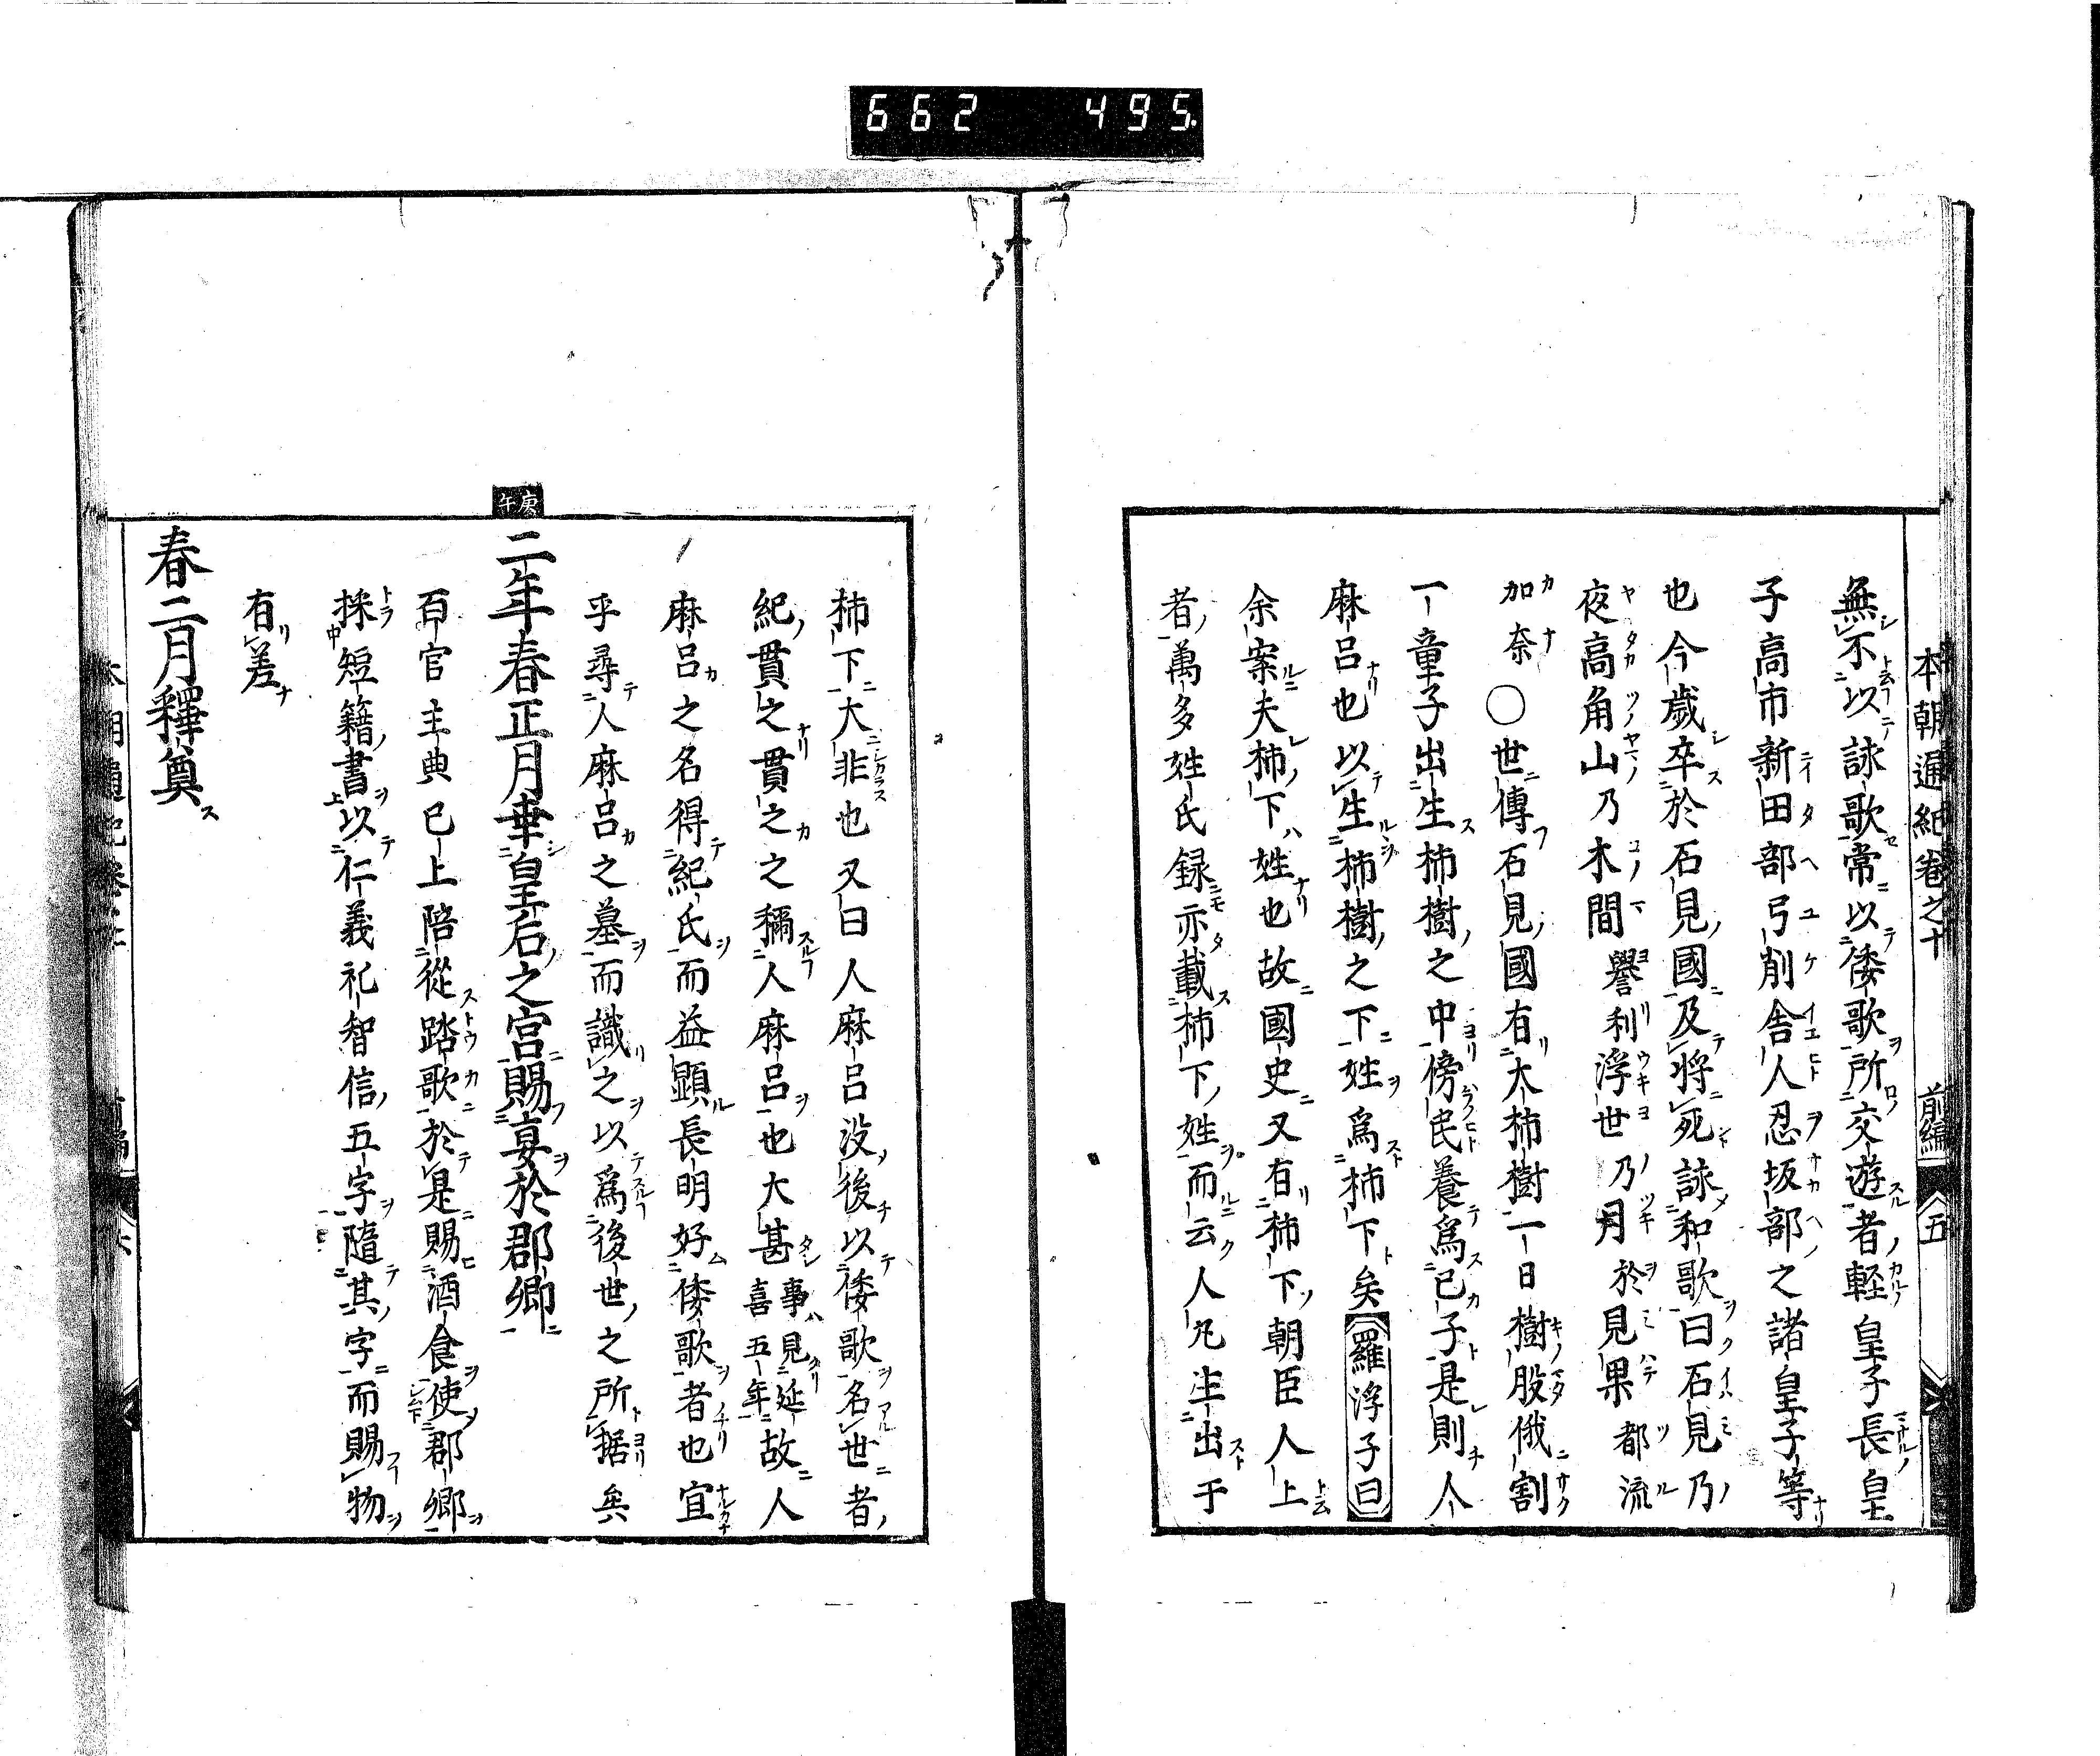 662 495.
本朝通紀卷之十 前編 五
無不以詠歌常以倭歌所交遊者輕皇子長皇
子高市新田部弓削舎人忍坂部之諸皇子等
也今歳卒於石見國及將死詠和歌曰石見乃
夜高角山乃木間譽利浮世乃月於見果都流
加奈〇世傳石見國有大柹樹一日樹股俄割
一童子出生柹樹之中傍民養爲己子是則人
麻呂也以生柹樹之下姓爲柹下矣羅浮子曰
余案夫柹下姓也故國史又有柹下朝臣人上
者萬多姓氏録亦載柹下姓而云人凡生出于
柹下大非也又曰人麻呂没後以倭歌名世者
紀貫之貫之之稱人麻呂也大甚事見延喜五年故人
麻呂之名得紀氏而益顕長明好倭歌者也宜
乎尋人麻呂之墓而識之以爲後世之所據矣
庚午
二年春正月幸皇后之宮賜宴於郡卿
百官主典已上陪從踏歌於是賜酒食使郡卿
採短籍書以仁義礼智信五字隨其字而賜物
有差
春二月釋奠